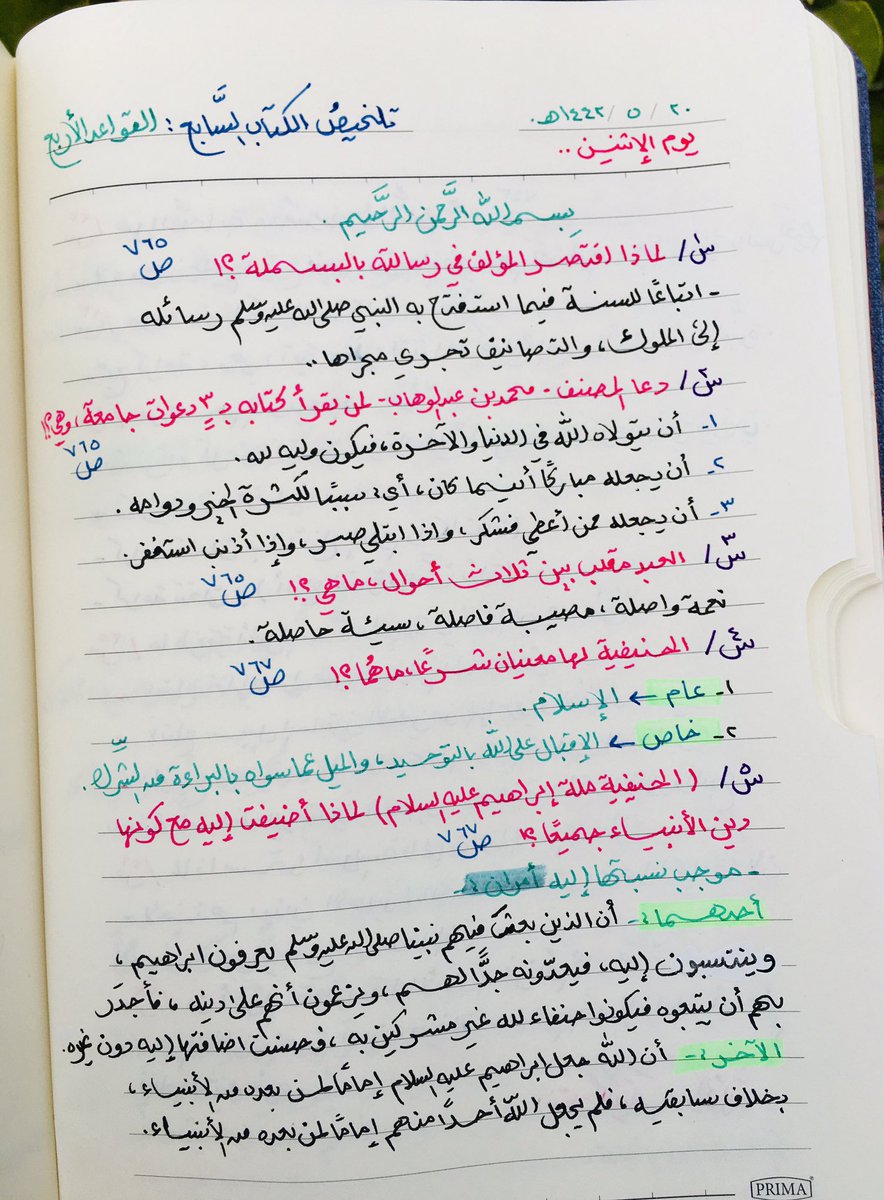 ٢٠ / ٥ / ١٤٤٢هـ.
تلخيصُ الكتاب السَّابع: القواعد الأربع
يوم الإثنين ..
بِسم الله الرَّحمن الرَّحيم.
س١/ لماذا اقتصر المؤلف في رسالته بالبسملة ؟! ص٧٦٥
- اتباعًا للسنة فيما استفتح به النبي صلى الله عليه وسلم رسائله
إلى الملوك، والتصانيف تجري مجراها..
س٢/ دعا المصنف - محمد بن عبدالوهاب - لمن يقرأ كتابه بـ ٣ دعوات جامعة، وهي؟! ص٧٦٥
١- أن يتولاه الله في الدنيا والآخرة، فيكون وليه لله.
٢- أن يجعله مباركًا أينما كان، أي: سببًا لكثرة الخير ودوامه.
٣- أن يجعله ممن أعطي فشكر، وإذا ابتلي صبر، وإذا أذنب استغفر.
س٣/ العبد مقلب بين ثلاث أحوال، ما هي ؟! ص٧٦٥
نعمة واصلة، مصيبة فاصلة، سيئة حاصلة.
س٤/ الحنيفية لها معنيان شرعًا، ما هُما ؟! ص٧٦٧
١- عام ← الإسلام.
٢- خاص ← الإقبال على الله بالتوحيد، والميل عما سواه بالبراءة من الشِّرك.
س٥/ (الحنيفية ملة إبراهيم عليه السلام) لماذا أضيفت إليه مع كونها
دين الأنبياء جميعًا ؟! ص٧٦٧
- موجب نسبتها إليه أمران :-
أحدهما :- أن الذين بعث فيهم نبينا صلى الله عليه وسلم يعرفون ابراهيم،
وينتسبون إليه، فيعدّونه جدًّا لهم، ويزعمون أنهم على دينه، فأجدَر
بهم أن يتبعوه فيكونوا حنفاء لله غير مشركين به، فحسنت اضافتها إليه دون غيره.
الآخر :- أن الله جعل ابراهيم عليه السلام إمامًا لمن بعده من الأنبياء،
بخلاف سابقيه، فلم يجعل الله أحدًا منهم إمامًا لمن بعده من الأنبياء.
PRIMA